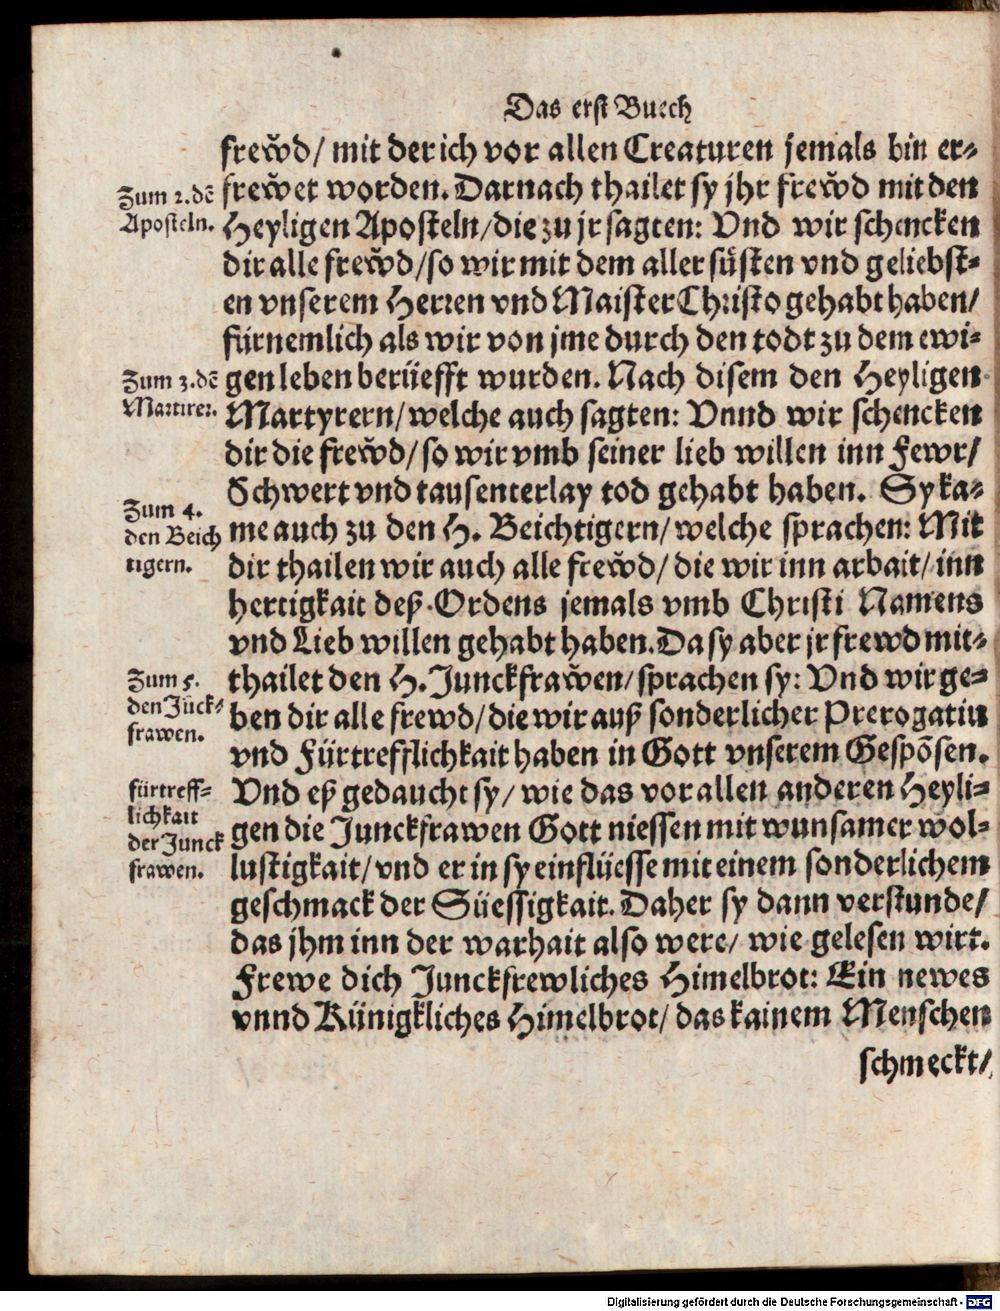 Das erst Buech
frew̌d/ mit der ich vor allen Creaturen jemals bin er-
frew̌et worden. Darnach thailet sy jhr frew̌d mit den
Zum 2. dē
Aposteln.
Heyligen Aposteln/ die zu jr sagten: Vnd wir schencken
dir alle frew̌d/ so wir mit dem aller süsten vnd geliebst-
en vnserem Herren vnd Maister Christo gehabt haben/
fürnemlich als wir von jme durch den todt zu dem ewi-
gen leben berüefft wurden. Nach disem den Heyligen
Zum 3. dē
Martirer.
Martyrern/ welche auch sagten: Vnnd wir schencken
dir die frew̌d/ so wir vmb seiner lieb willen inn Fewr/
Schwert vnd tausenterlay tod gehabt haben. Sy ka-
Zum 4.
den Beich
tigern.
me auch zu den H. Beichtigern/ welche sprachen: Mit
dir thailen wir auch alle frew̌d/ die wir inn arbait/ inn
hertigkait deß Ordens jemals vmb Christi Namens
vnd Lieb willen gehabt haben. Da sy aber jr frewd mit-
Zum 5.
den Jūck-
frawen.
thailet den H. Junckfraw̌en/ sprachen sy: Vnd wir ge-
ben dir alle frewd/ die wir auß sonderlicher Prerogatiu
vnd Fürtrefflichkait haben in Gott vnserem Gespōsen.
fürtreff-
lichkait
der Junck
frawen.
Vnd eß gedaucht sy/ wie das vor allen anderen Heyli-
gen die Junckfrawen Gott niessen mit wunsamer wol-
lustigkait/ vnd er in sy einflüesse mit einem sonderlichem
geschmack der Süessigkait. Daher sy dann verstunde/
das jhm inn der warhait also were/ wie gelesen wirt.
Frewe dich Junckfrewliches Himelbrot: Ein newes
vnnd Künigkliches Himelbrot/ das kainem Menschen
schmeckt/
Digitalisierung gefördert durch die Deutsche Forschungsgemeinschaft - DFG